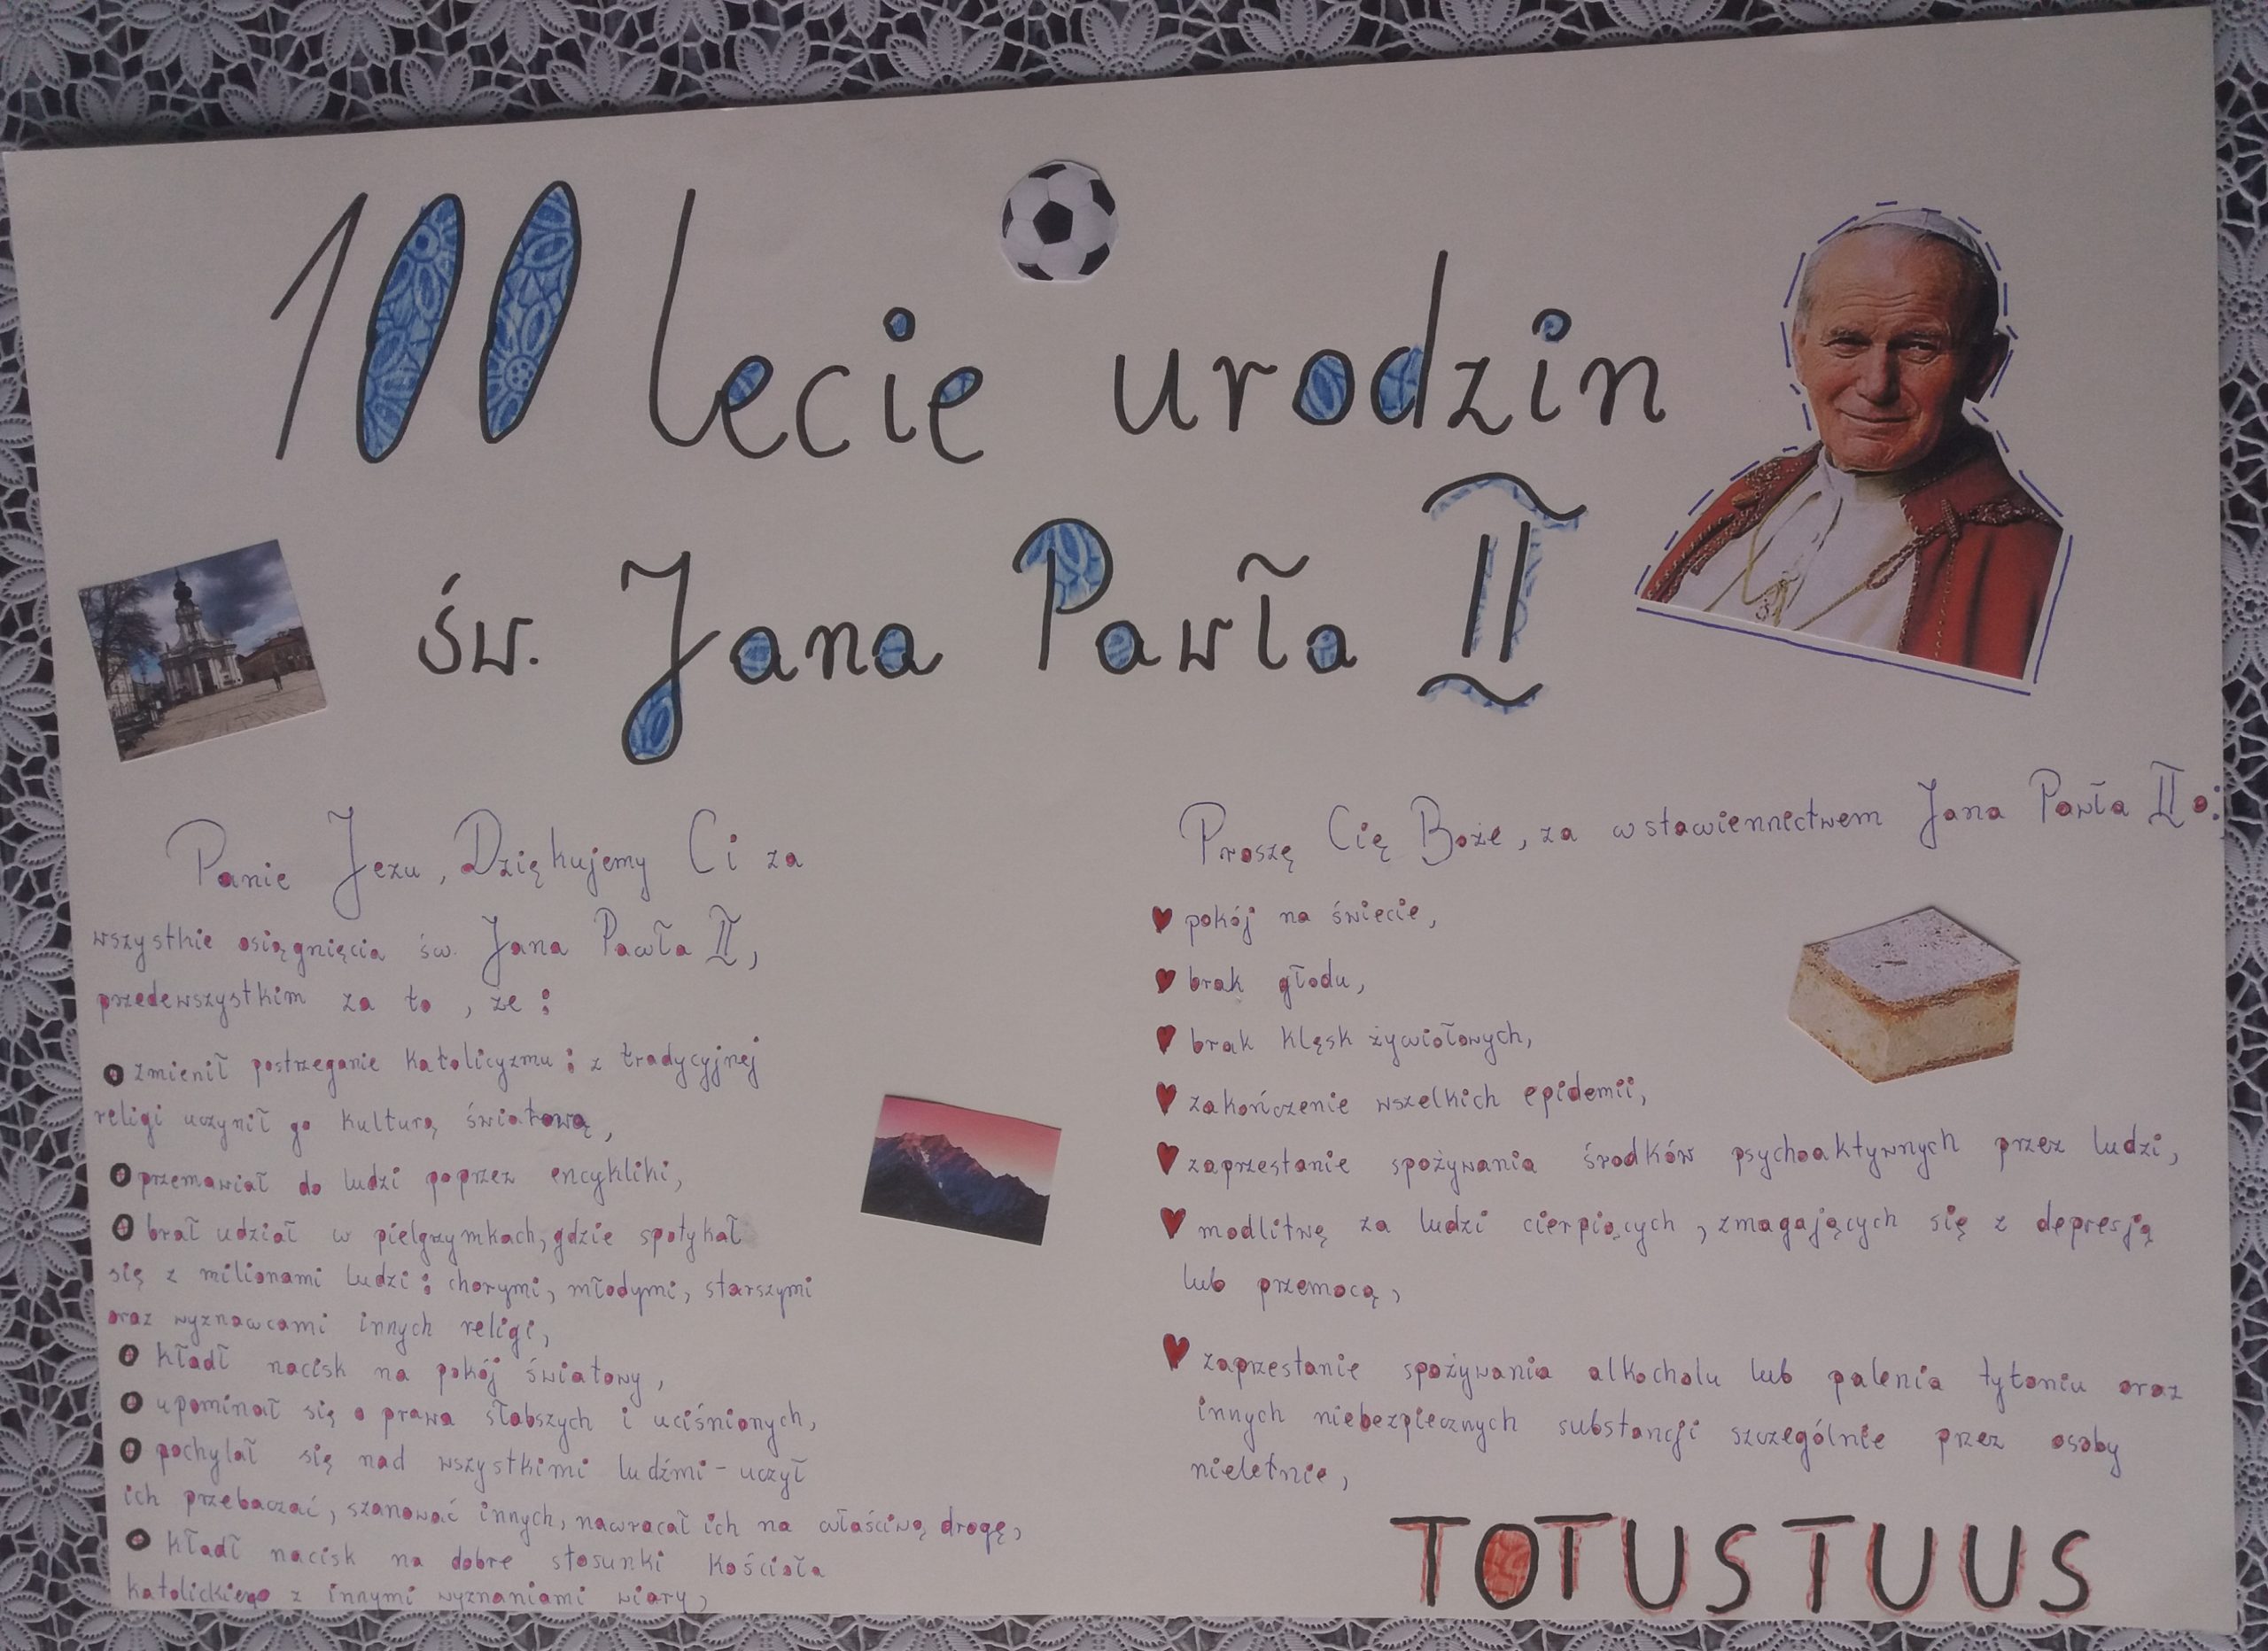 100 lecie urodzin
św. Jana Pawła II
Panie Jezu, Dziękujemy Ci za
wszystkie osiągnięcia św. Jana Pawła II,
przedewszystkim za to, że:
zmienił postrzeganie katolicyzmu: z tradycyjnej
religi uczynił go kulturą światową,
przemawiał do ludzi poprzez encykliki,
brał udział w pielgrzymkach, gdzie spotykał
się z milionami ludzi: chorymi, młodymi, starszymi
oraz wyznawcami innych religi,
kładł nacisk na pokój światowy,
upominał się o prawa słabszych i uciśnionych,
pochylał się nad wszystkimi ludźmi - uczył
ich przebaczać, szanować innych, nawracał ich na właściwą drogę,
kładł nacisk na dobre stosunki Kościoła
katolickiego z innymi wyznaniami wiary,
Proszę Cię Boże, za wstawiennictwem Jana Pawła II o:
♥ pokój na świecie,
♥ brak głodu,
♥ brak klęsk żywiołowych,
♥ zakończenie wszelkich epidemii,
♥ zaprzestanie spożywania środków psychoaktywnych przez ludzi,
♥ modlitwę za ludzi cierpiących, zmagających się z depresją
lub przemocą,
♥ zaprzestanie spożywania alkocholu lub palenia tytoniu oraz
innych niebezpiecznych substancji szczególnie przez osoby
nieletnie,
TOTUS TUUS